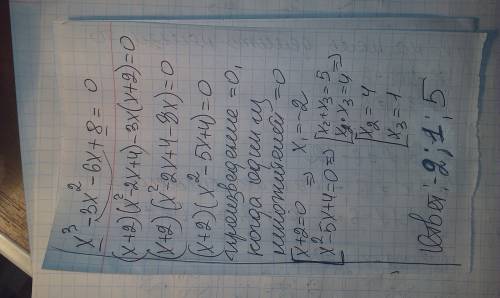 x³ - 3x² - 6x + 8 = 0
(x+2)(x²-2x+4)-3x(x+2)=0
(x+2)(x²-2x+4-3x)=0
(x+2)(x²-5x+4)=0
произведение =0,
когда один из
множителей =0
[x+2=0 ⇒ x₁=-2
[x²-5x+4=0 ⇒ [x₂+x₃=5
[x₂·x₃=4 ⇒
[x₂=4
[x₃=1
Ответ: -2; 1; 5